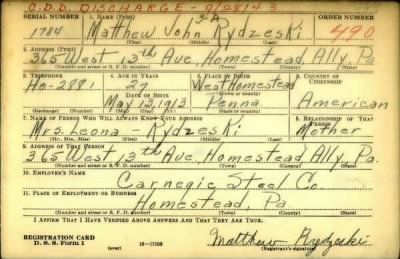 C.D.D. DISCHARGE - 9/28/43
SERIAL NUMBER 1. NAME (Print) ORDER NUMBER
1784 Matthew John Rydzeski 490
(First) (Middle) (Last)
2. ADDRESS (Print)
365 West 13th Ave, Homestead, Ally, Pa
(Number and street or R. F. D. number) (Town) (County) (State)
3. TELEPHONE 4. AGE IN YEARS 5. PLACE OF BIRTH 6. COUNTRY OF CITIZENSHIP
Ho-2881 27 West Homestead
DATE OF BIRTH (Town or county)
May 13, 1913 Penna. American
(Exchange) (Number) (Mo.) (Day) (Yr.) (State or country)
7. NAME OF PERSON WHO WILL ALWAYS KNOW YOUR ADDRESS 8. RELATIONSHIP OF THAT PERSON
Mrs. Leona - Rydzeski Mother
(Mr., Mrs., Miss) (First) (Middle) (Last)
9. ADDRESS OF THAT PERSON
365 West 13th Ave, Homestead, Ally, Pa.
(Number and street or R. F. D. number) (Town) (County) (State)
10. EMPLOYER'S NAME
Carnegie Steel Co.
11. PLACE OF EMPLOYMENT OR BUSINESS
Homestead, Pa
(Number and street or R. F. D. number) (Town) (County) (State)
I AFFIRM THAT I HAVE VERIFIED ABOVE ANSWERS AND THAT THEY ARE TRUE.
REGISTRATION CARD
D. S. S. Form 1 (over) Matthew Rydzeski
(Registrant's signature)